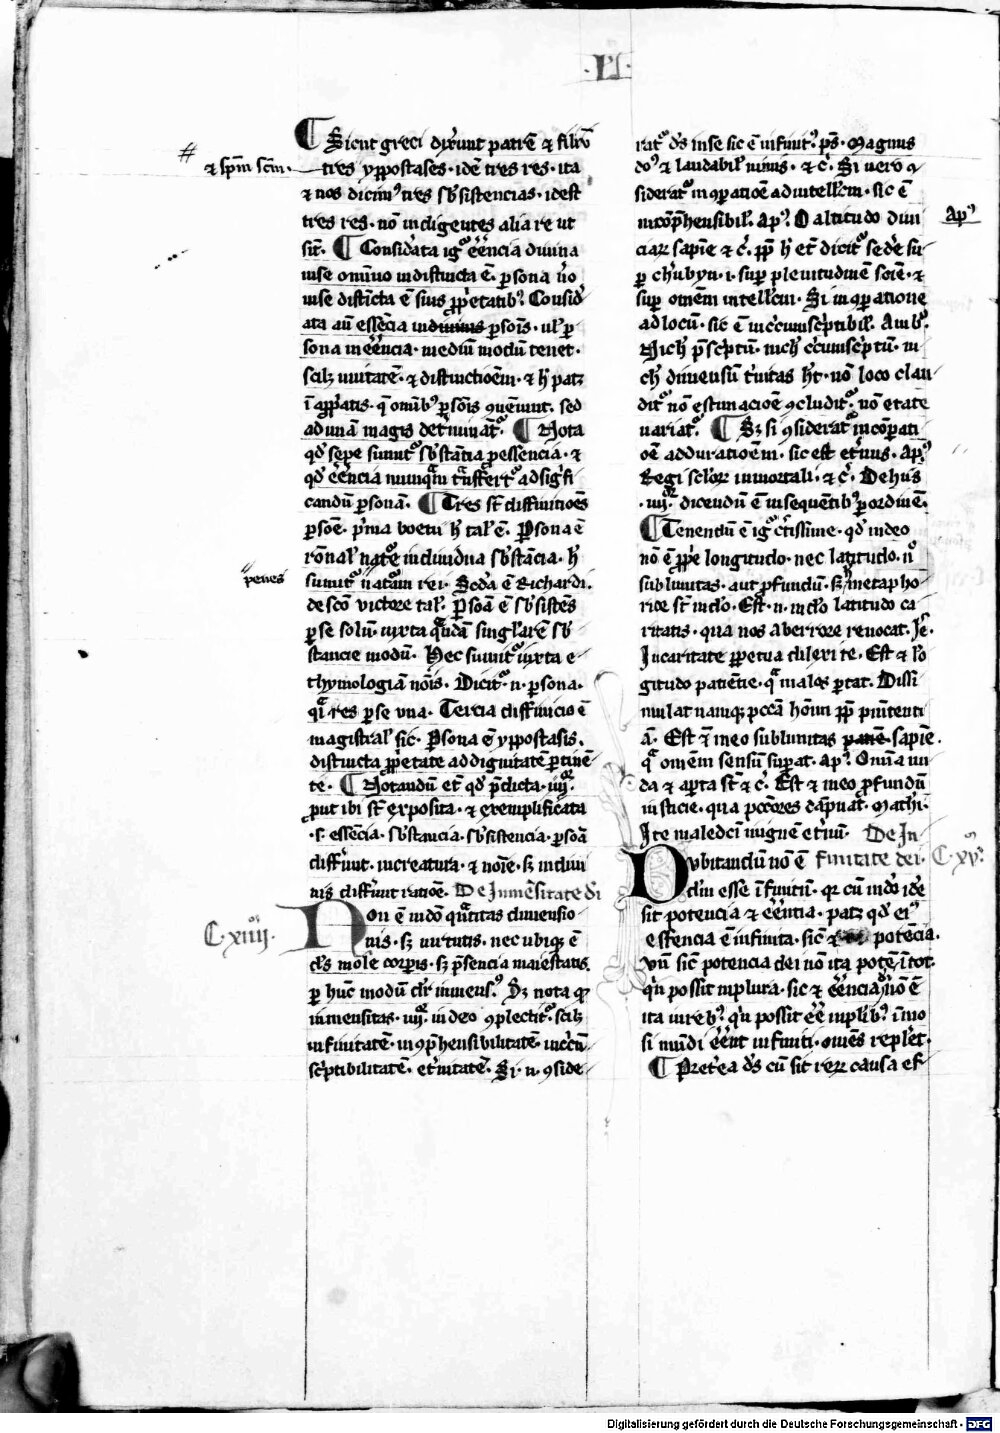 ·VI·
Sicut greci dix̃unt patrẽ ⁊ filiũ
# ⁊ spm̃ scm̃.
tres ypostases · idẽ tres res · ita
⁊ nos dicimꝰ tres sb̃sistencias · idest
tres res · nõ indigentes alia re ut
sĩt. ¶ Considerata igᷣ eẽ̃ncia diuina
in se omĩno indistincta ẽ. ꝑsona ño
in se distĩcta ẽ suis ꝓp̃etatibꝰ. Consid̾
ata aũt essẽcia in ꝑsoĩs · ul̾ ꝑ
sona in eẽ̃ncia · mediũ modũ tenet ·
scilꝫ unitatẽ · ⁊ distinctioẽm · ⁊ h̾ patꝫ
ĩ app̾atis · q̃ omĩbꝰ ꝑsoĩs ꝯueniũt. sed
ad unã magis det̾minãtᷣ. ¶ Nota
qd̾ sepe sumitᷣ sb̃stãcia ꝓ essencia · ⁊
qd̾ eẽ̃ncia nunqᷓm tᷓnsfertᷣ ad sig̾fi
candũ ꝑsonã. ¶ Tres st̃ diffinitiões
ꝑsoẽ · p̾ma boetii h̾ tal̾ ẽ. Persona ẽ
rõnal̾ nat̾e indiuidua sb̃stãcia · h̾
penes
sumitᷣ natᷓam rei. Scd̾a ẽ Richardi.
de scõ victore tal̾. Psõa ẽ sb̃sistẽs
ꝑ se solũ · iuxta qᷓndã singl̾arẽ sb̾
stancie modũ. Hec sumitᷣ iuxta e
thymologiã nõis. Dicitᷣ · n · ꝑsona ·
qᷓi res ꝑ se una. Tercia diffinicio ẽ
magistral̾ sic. Psona ẽ ypostasis.
distincta ꝓp̃etate ad dignitatẽ ꝑtinẽ
te. ¶ Notandũ et̃ qd̾ p̃dicta · iiij ·
put ibi st̃ exposita · ⁊ exemplificata
· s · essẽcia · sb̃stancia · sb̃sistencia · ꝑsoã
diffrũt · in creatura · ⁊ noĩe · sꝫ in diui
nis diffrũt ratiõe. De Inmẽsitate dĩ
C. xiiij.
Non ẽ in dõ qᷓntitas dimensio
nis · sꝫ uirtutis · nec ubiqꝫ ẽ
ds̃ mole corpis · sꝫ p̃sencia maiestatis.
ꝑ hũc modũ dr̃ inmensꝰ. Sꝫ nota qd̾
inmensitas · iiij · in deo ꝯplectitᷣ. scilꝫ
infinitatẽ · incõp̃hensibilitatẽ · incircũ
sc̾ptibilitatẽ · et̾nitatẽ. Si · n · ꝯside
ratᷣ ds̃ in se sic ẽ infinitꝰ. ps̃ · Magnus
dõꝰ ⁊ laudabil̾ nimis · ⁊ c̾. Si uero ꝯ
sideratᷣ in ꝯpatioẽ ad intell̾cm · sic ẽ
incõp̃hensibil̾. Apꝰ. O altitudo diui
Apꝰ
ciar̃ sapĩe ⁊ c̾. ꝓp̃ h̾ et̃ dicitᷣ sed̾e su
ꝑ ch̾ubyn · i · suꝑ plenitudinẽ sciẽ · ⁊
suꝑ omẽm intell̾cm. Si in ꝯpatione
ad locũ · sic ẽ inc̾cumsc̾ptibil̾. Ambꝰ.
Nich̾ p̃sc̾ptũ · nich̾ c̾cumsc̾ptũ · ni
ch̾ dimensũ t̾nitas h̾t · nõ loco clau
ditᷣ nõ estimacioẽ ꝯcluditᷣ · nõ etate
uariatᷣ. ¶ Sꝫ si ꝯsideratᷣ in cõpati
oẽ ad duratioẽm · sic est et̾nus. Apꝰ.
Regi sclor̃ inmortali · ⁊ c̾. De hiis
· iiij · dicendũ ẽ in sequentibꝰ ꝑ ordinẽ.
¶ Tenendũ ẽ igᷣ c̾tissime · qd̾ in deo
nõ ẽ ꝓp̃e longitudo · nec latitudo · nͦ
sublimitas · aut ꝓfundũ · sꝫ metapho
rice st̃ in dõ. Est · n · in dõ latitudo ca
ritatis · qua nos ab errore reuocat. Je.
In caritate ꝑpetua dilexi te. Est ⁊ lõ
gitudo patiẽtie · qᷓ malos portat. Dissi
mulat namqꝫ pccã hoĩm ꝓp̃ penitenti
ã. Est ⁊ ĩ deo sublimitas sapiẽ ·
qᷓ omẽm sensũ suꝑat. Apꝰ. Omĩa nu
da ⁊ aꝑta st̃ ⁊ c̾. Est ⁊ in eo ꝓfundũ
iusticie · qua pccõres dãpnat. Mathi ·
Ite maledcĩ in ignẽ et̾nũ. De In
finitate dei. C. xvꝰ.
Dubitandũ nõ ẽ
dĩm esse ĩfinitũ · qr̃ cũ in dõ idẽ
sit potencia ⁊ eẽ̃ntia · patꝫ qd̾ eiꝰ
essencia ẽ infinita · sic̃ ⁊ potẽcia ·
Vñ sic̃ potencia dei nõ ita potẽ ĩ tot
qͥn possit in plura · sic ⁊ eẽ̃ncia nõ ẽ
ita in rebꝰ. qͥn possit eẽ̃ in plibꝰ. ĩmo
si mũdi eẽ̃nt infiniti · omẽs replẽt.
¶ Pret̾ea ds̃ cũ sit rerũ causa ef
Digitalisierung gefördert durch die Deutsche Forschungsgemeinschaft - DFG